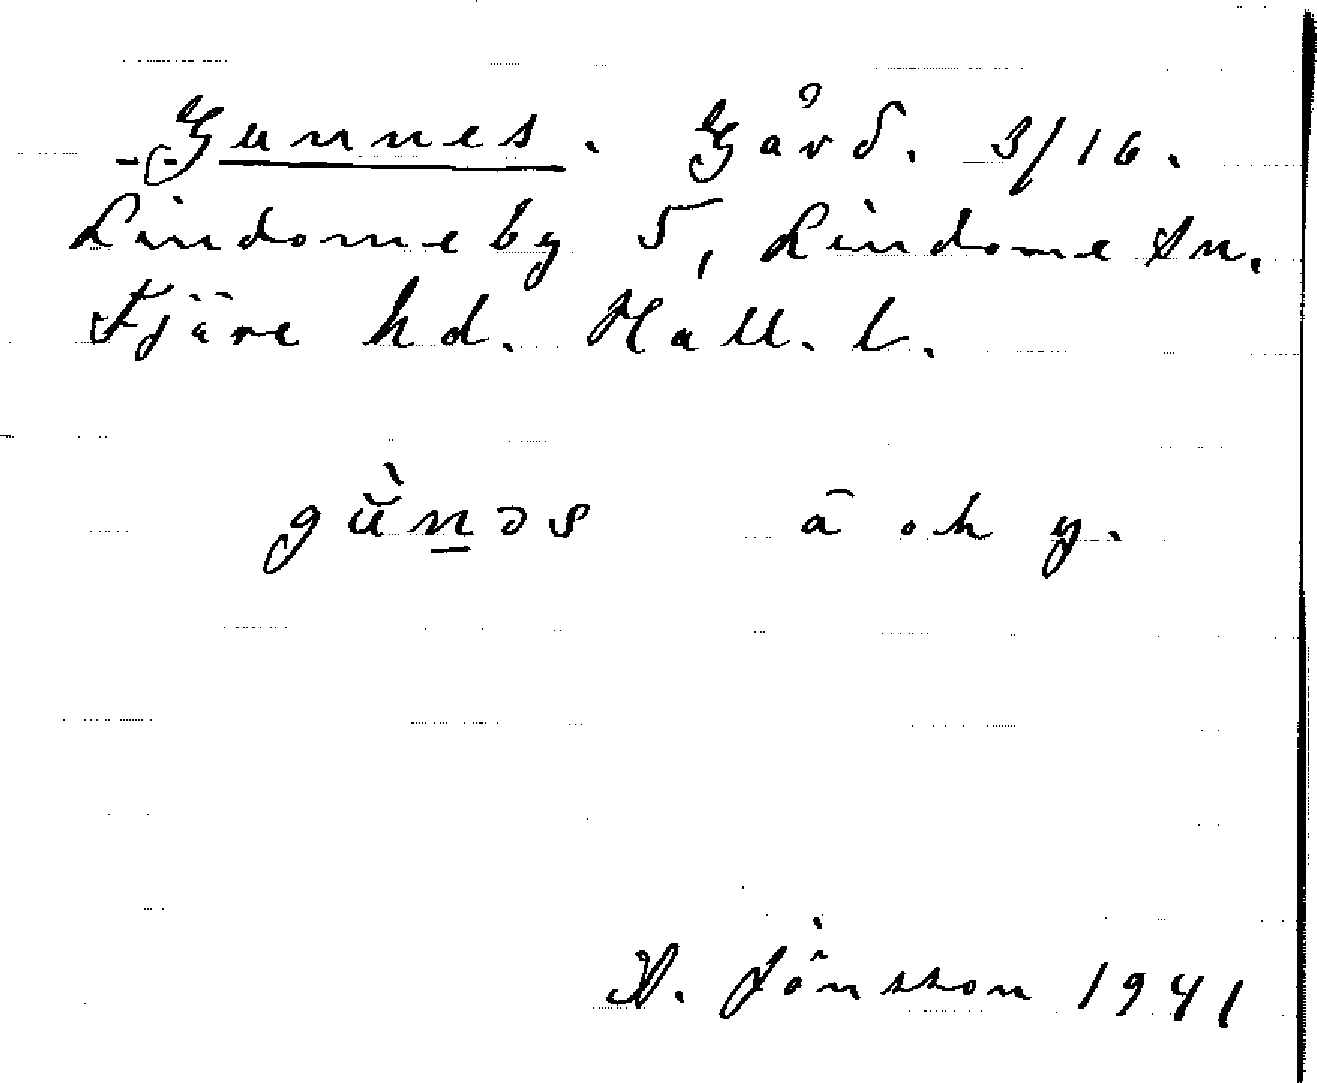 Gunnes. Gård. 3/16.
Lindome by 5, Lindome sn.
Fjäre hd. Hall. l.
gùnəs ā och y.
H. Jönsson 1941